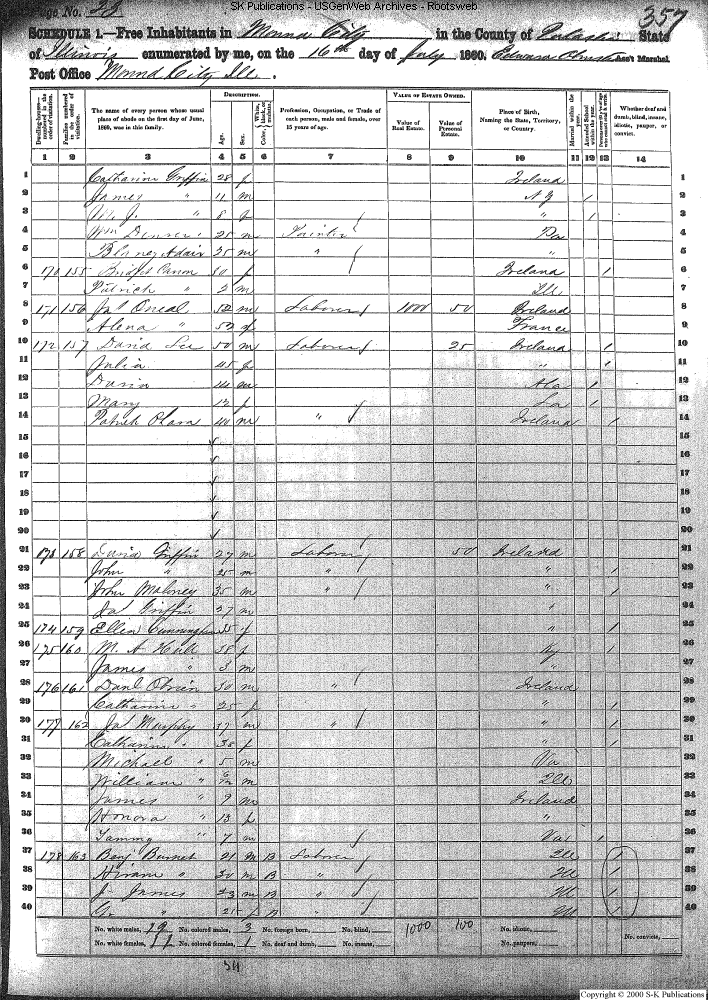 SK Publications - USGenWeb Archives - Rootsweb
Page No. 23
357
SCHEDULE 1.—Free Inhabitants in Mound City in the County of Pulaski State
of Illinois enumerated by me, on the 16th day of July 1860. Ass't Marshal
Post Office Mound City Ill.
DESCRIPTION. VALUE OF ESTATE OWNED.
Dwelling-houses—numbered in the order of visitation.
Families numbered in the order of visitation.
The name of every person whose usual place of abode on the first day of June, 1860, was in this family.
Age.
Sex.
Color, White, black, or mulatto.
Profession, Occupation, or Trade of each person, male and female, over 15 years of age.
Value of Real Estate.
Value of Personal Estate.
Place of Birth, Naming the State, Territory, or Country.
Married within the year.
Attended School within the year.
Persons over 20 y'rs of age who cannot read & write.
Whether deaf and dumb, blind, insane, idiotic, pauper, or convict.
1 2 3 4 5 6 7 8 9 10 11 12 13 14
1 Catharine Griffin 28 f Ireland 1
2 James " 11 m N Y / 2
3 M. J. " 8 f " / 3
4 Wm 25 m Painter / Pa 4
5 Blaney Adair 25 m " / " 5
6 170 155 Bridget Canon 30 f Ireland / 6
7 Patrick " 2 m Ill 7
8 171 156 Jas Oneal 52 m Laborer / 1000 50 Ireland 8
9 Alena " 52 f France 9
10 172 157 David Lee 50 m Laborer / 25 Ireland / 10
11 Julia 45 f " / 11
12 David 14 m Ala / 12
13 Mary 12 f La / 13
14 Patrick Ohara 40 m " / Ireland / 14
15 15
16 16
17 17
18 18
19 19
20 20
21 173 158 David Griffin 27 m Laborer / 50 Ireland 21
22 John " 25 m " / " / 22
23 John Maloney 35 m " / " / 23
24 Jas Griffin 27 m " 24
25 174 159 Ellen Cunningham 35 f " / 25
26 175 160 M. A Hall 38 f Ky / 26
27 James " 3 m " 27
28 176 161 Danl Obrien 30 m " / Ireland 28
29 Catharine " 25 f " / 29
30 177 162 Jas Murphy 37 m " / " / 30
31 Catharine " 35 f " / 31
32 Michael " 5 m Va 32
33 William " m Ill 33
34 James " 9 m Ireland 34
35 Honora " 13 f " 35
36 Tammy " 7 m Va / 36
37 178 163 Benj Burnet 21 m B Laborer / Ill / 37
38 Hiram " 30 m B " / Ill / 38
39 J James 23 m B " / Ill / 39
40 G. " 25 f B " Ill / 40
No. white males, 29 No. colored males, 3 No. foreign born, No. blind, 1000 100 No. idiotic,
No. white females, 11 No. colored females, 1 No. deaf and dumb, No. insane, No. paupers, No. convicts,
34
Copyright © 2000 S-K Publications